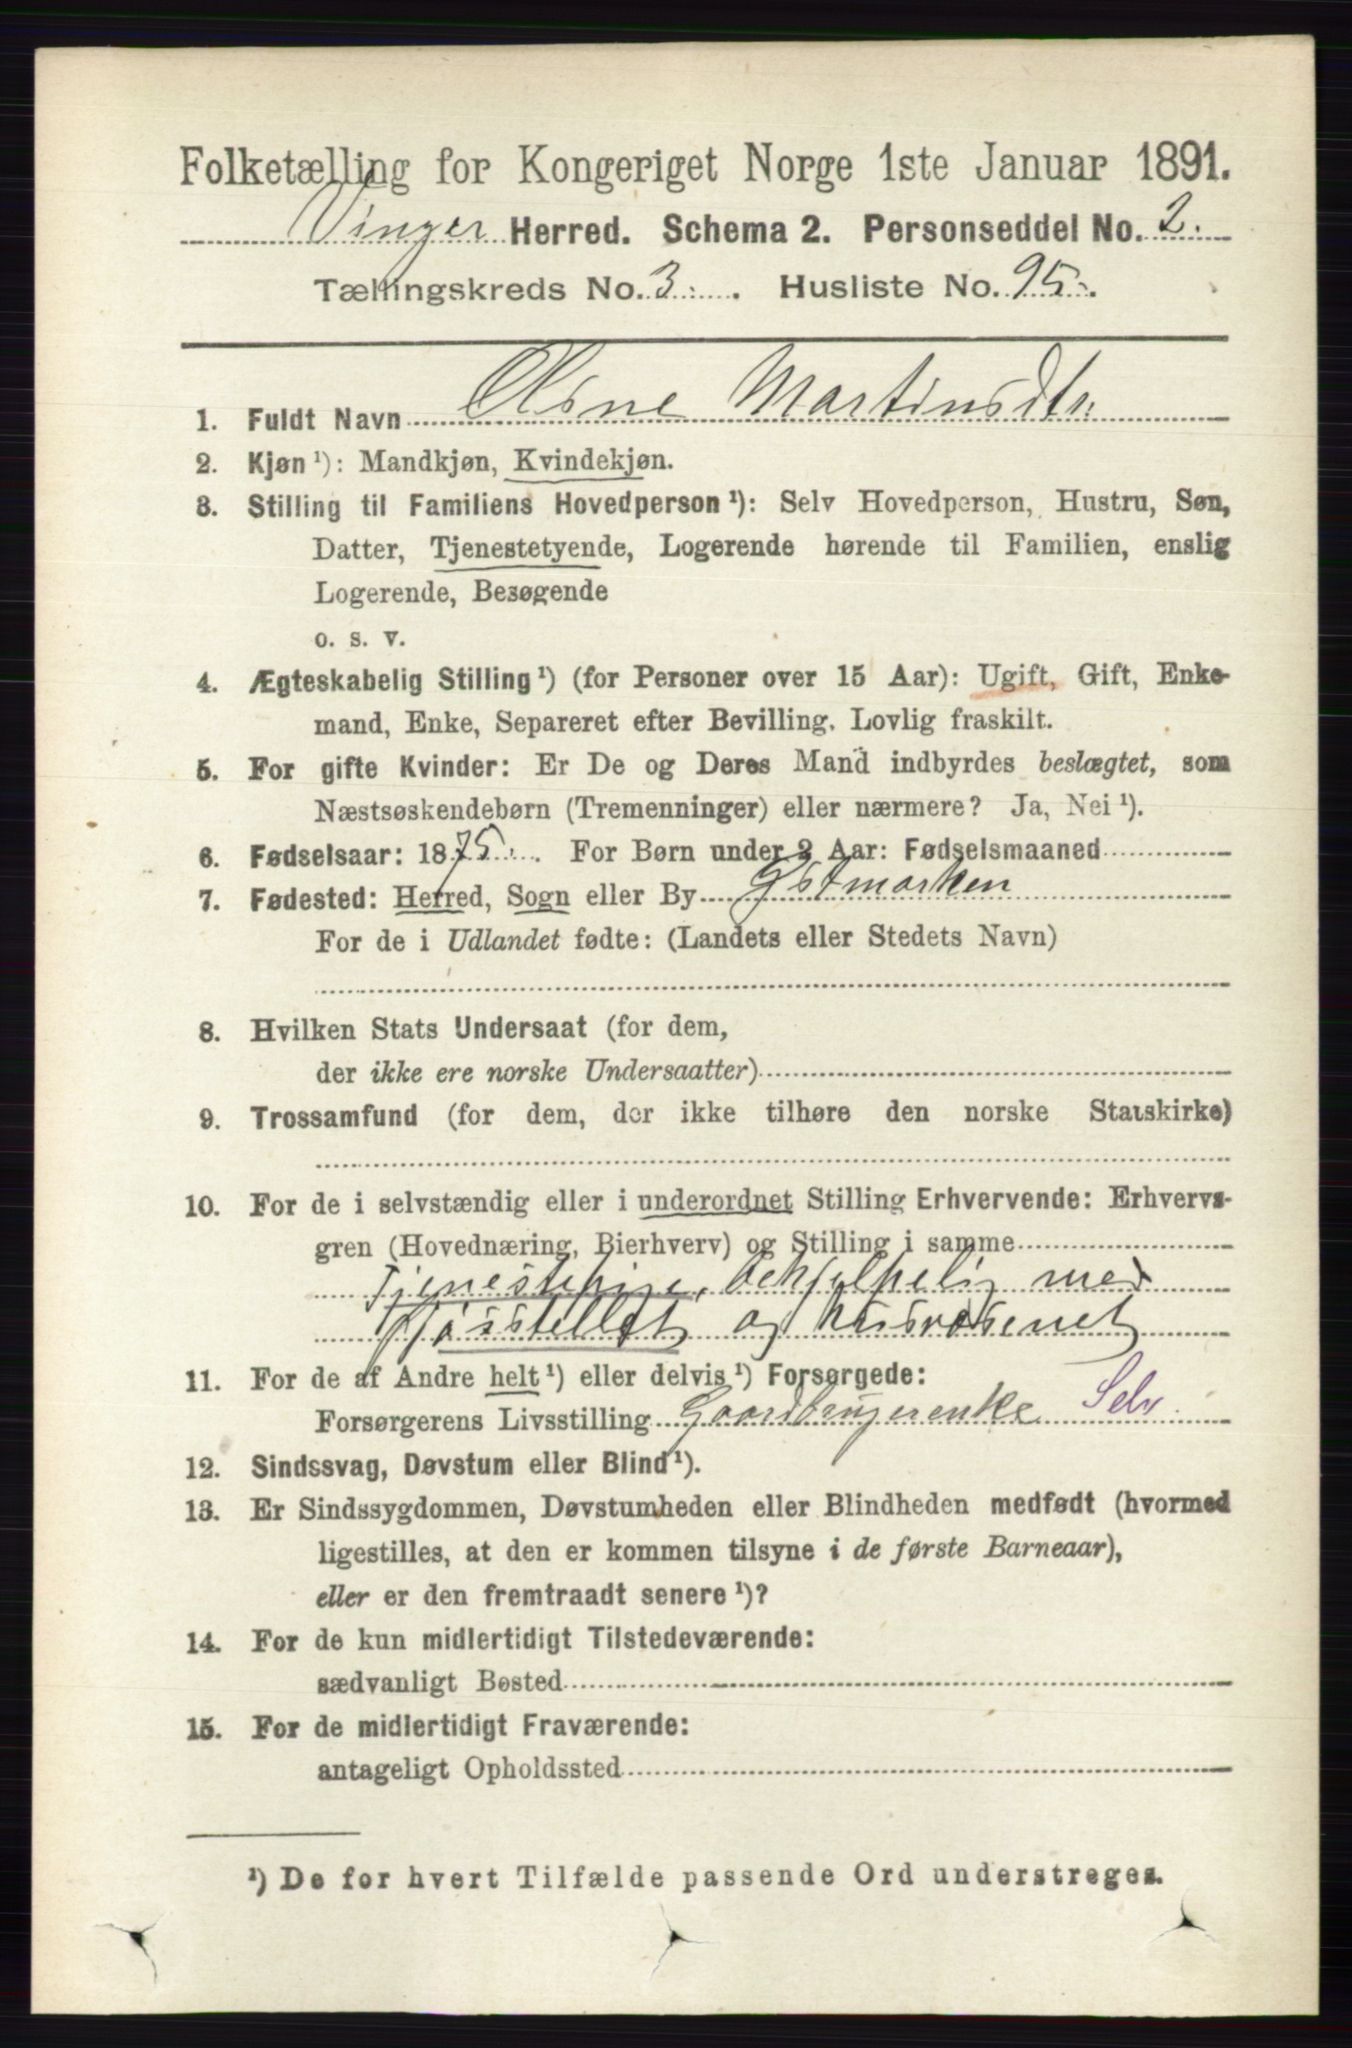 Folketælling for Kongeriget Norge 1ste Januar 1891.
Vinger Herred. Schema 2. Personseddel No. 2.
Tællingskreds No. 3. Husliste No. 95.
1. Fuldt Navn Martinsdtr.
2. Kjøn ¹): Mandkjøn, Kvindekjøn.
3. Stilling til Familiens Hovedperson ¹): Selv Hovedperson, Hustru, Søn,
Datter, Tjenestetyende, Logerende hørende til Familien, enslig
Logerende, Besøgende
o. s. v.
4. Ægteskabelig Stilling ¹) (for Personer over 15 Aar): Ugift, Gift, Enke-
mand, Enke, Separeret efter Bevilling. Lovlig fraskilt.
5. For gifte Kvinder: Er De og Deres Mand indbyrdes beslægtet, som
Næstsøskendebørn (Tremenninger) eller nærmere? Ja, Nei ¹).
6. Fødselsaar: 1875. For Børn under 2 Aar: Fødselsmaaned
7. Fødested: Herred, Sogn eller By Østmarken
For de i Udlandet fødte: (Landets eller Stedets Navn)
8. Hvilken Stats Undersaat (for dem,
der ikke ere norske Undersaatter)
9. Trossamfund (for dem, der ikke tilhøre den norske Statskirke)
10. For de i selvstændig eller i underordnet Stilling Erhvervende: Erhvervs-
gren (Hovednæring, Bierhverv) og Stilling i samme
Tjenestepige, behjelpelig med
fjøsstellet og husvæsenet
11. For de af Andre helt ¹) eller delvis ¹) Forsørgede:
Forsørgerens Livsstilling Gaardbrugerenke Selv
12. Sindssvag, Døvstum eller Blind ¹).
13. Er Sindssygdommen, Døvstumheden eller Blindheden medfødt (hvormed
ligestilles, at den er kommen tilsyne i de første Barneaar),
eller er den fremtraadt senere ¹)?
14. For de kun midlertidigt Tilstedeværende:
sædvanligt Bosted
15. For de midlertidigt Fraværende:
antageligt Opholdssted
¹) De for hvert Tilfælde passende Ord understreges.